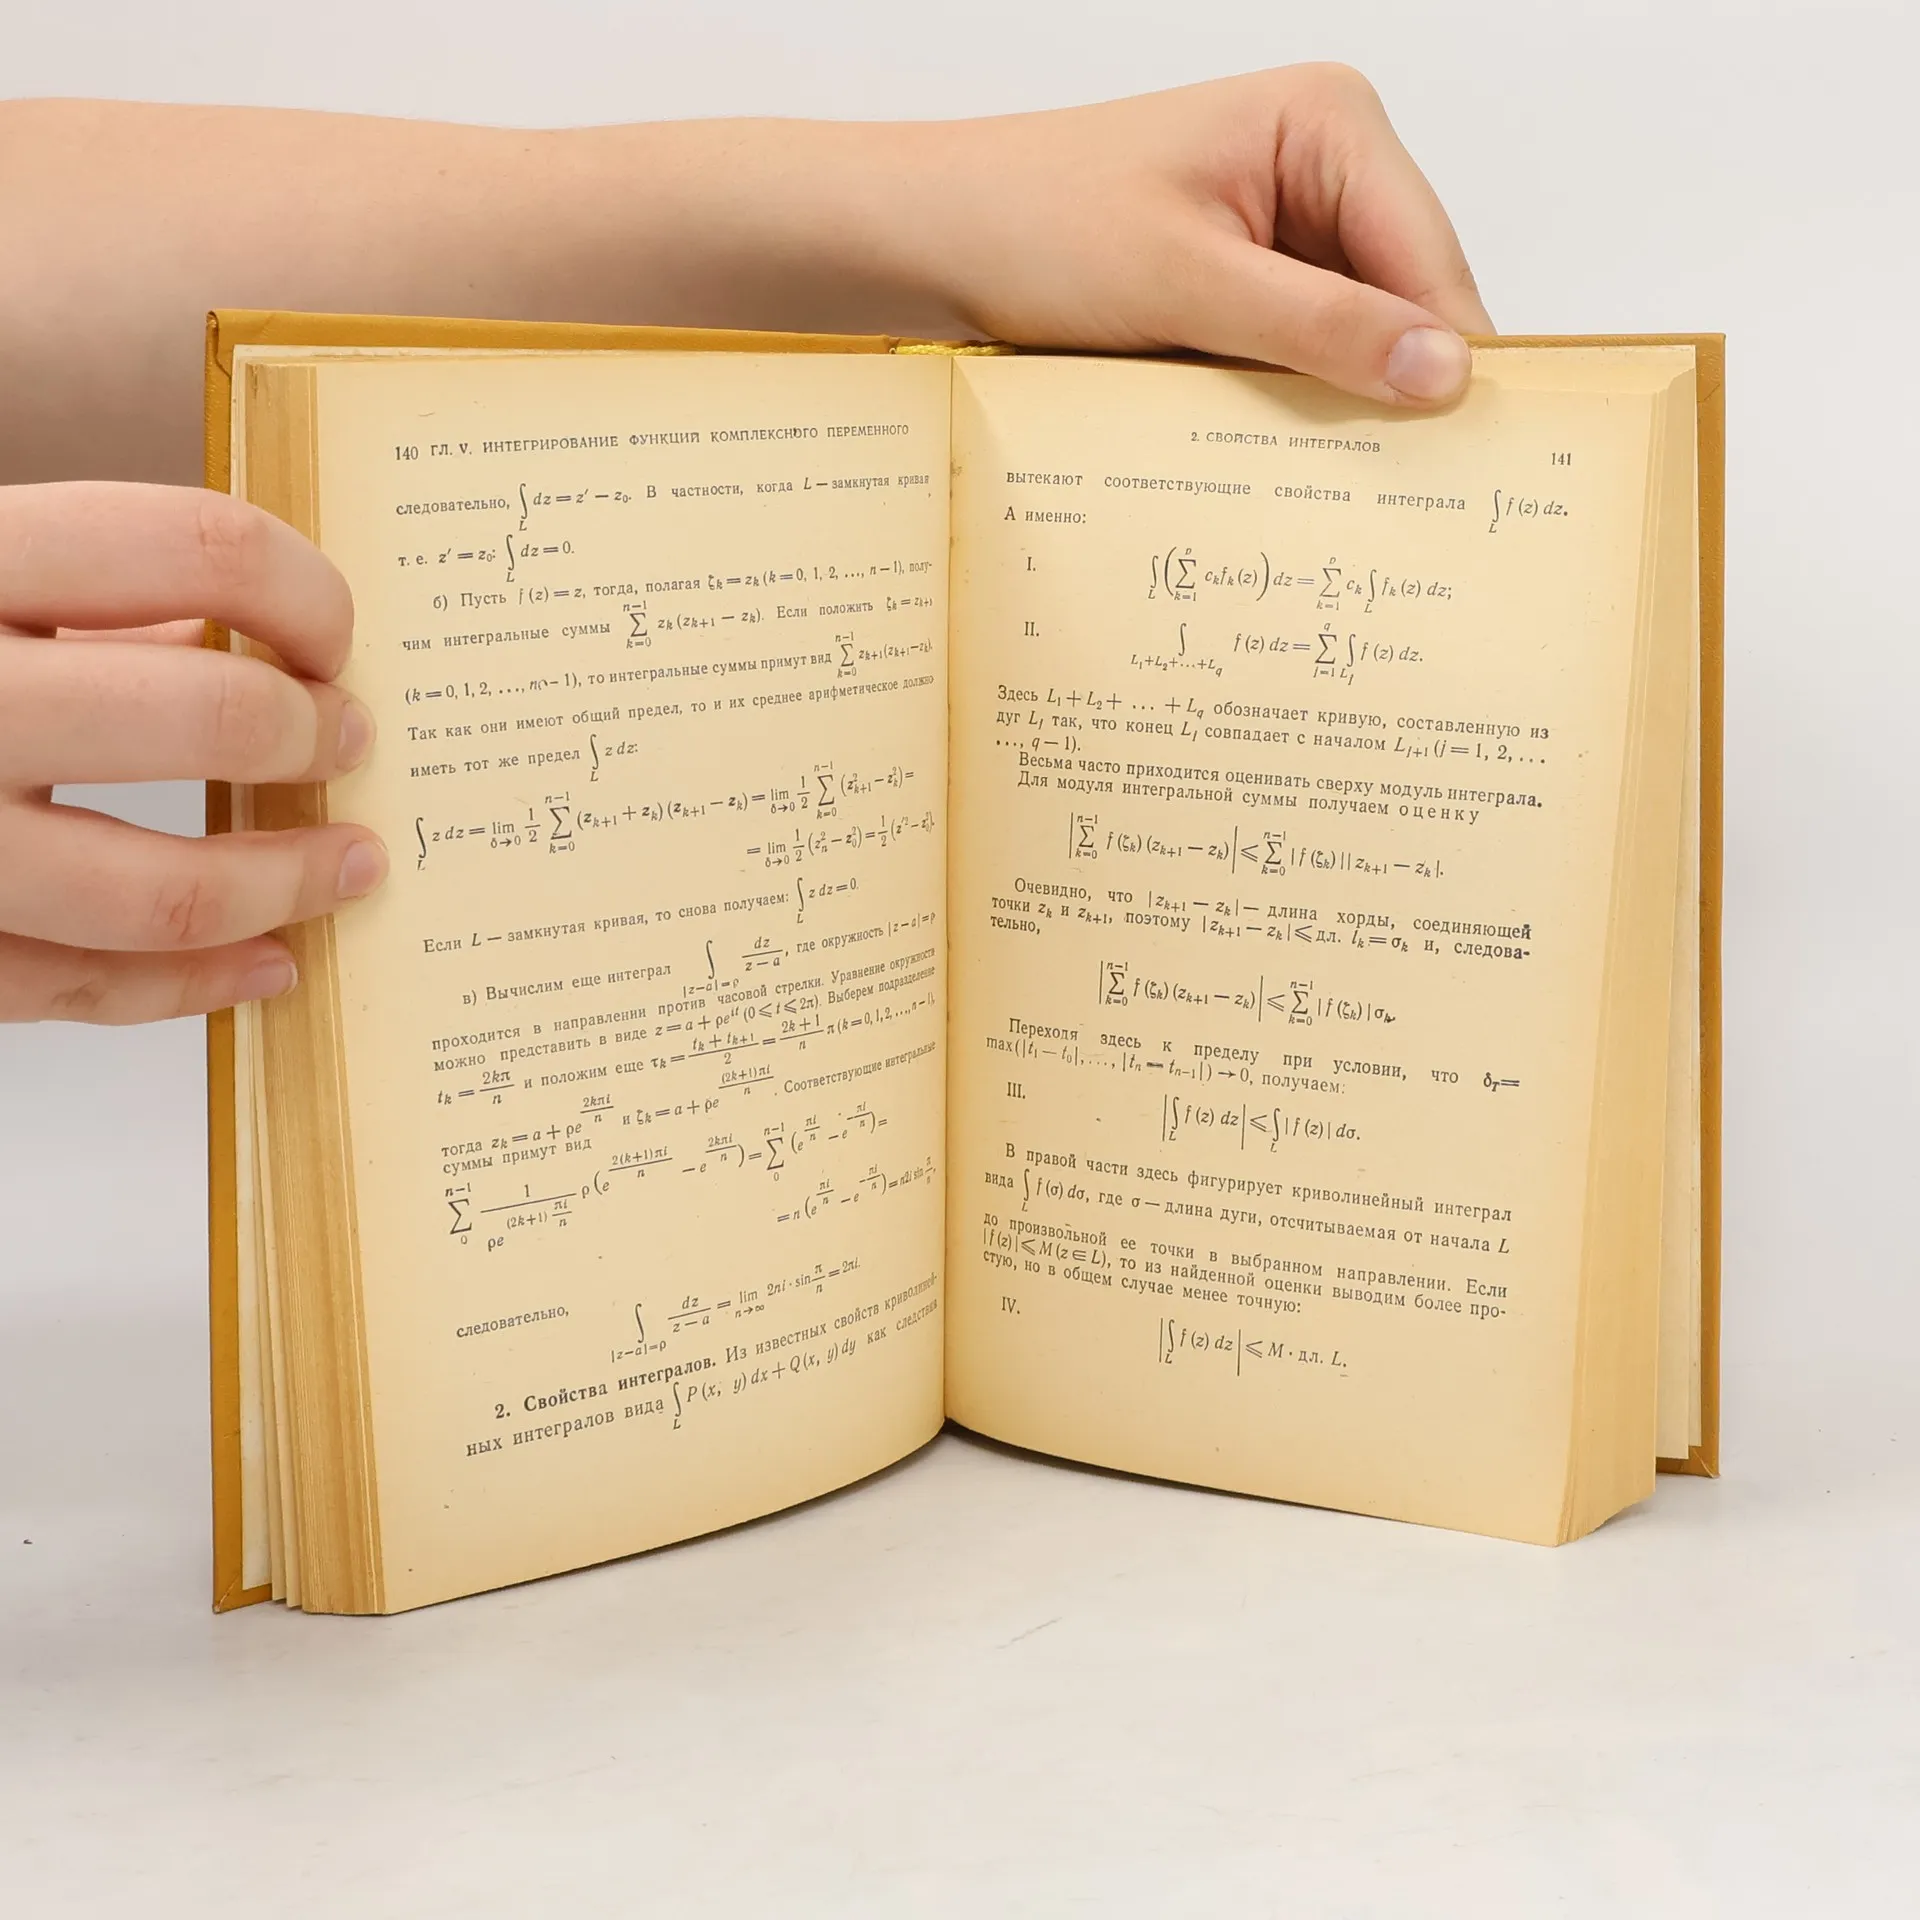 140 ГЛ. V. ИНТЕГРИРОВАНИЕ ФУНКЦИЙ КОМПЛЕКСНОГО ПЕРЕМЕННОГО
следовательно, ∫_L dz = z′ — z₀. В частности, когда L — замкнутая кривая
т. е. z′ = z₀: ∫_L dz = 0.
б) Пусть f (z) = z, тогда, полагая ζ_k = z_k (k = 0, 1, 2, ..., n — 1), полу-
чим интегральные суммы ∑_{k=0}^{n−1} z_k (z_{k+1} — z_k). Если положить ζ_k = z_{k+1}
(k = 0, 1, 2, ..., n — 1), то интегральные суммы примут вид ∑_{k=0}^{n−1} z_{k+1} (z_{k+1} — z_k).
Так как они имеют общий предел, то и их среднее арифметическое должно
иметь тот же предел ∫_L z dz:
∫_L z dz = lim_{δ→0} 1/2 ∑_{k=0}^{n−1} (z_{k+1} + z_k) (z_{k+1} — z_k) = lim_{δ→0} 1/2 ∑_{k=0}^{n−1} (z²_{k+1} — z²_k) =
= lim_{δ→0} 1/2 (z²_n — z²_0) = 1/2 (z′² — z²_0).
Если L — замкнутая кривая, то снова получаем: ∫_L z dz = 0.
в) Вычислим еще интеграл ∫_{|z−a|=ρ} dz/(z — a), где окружность |z — a| = ρ
проходится в направлении против часовой стрелки. Уравнение окружности
можно представить в виде z = a + ρe^{it} (0 ⩽ t ⩽ 2π). Выберем подразделение
t_k = 2kπ/n и положим еще τ_k = (t_k + t_{k+1})/2 = (2k + 1)/n π (k = 0, 1, 2, ..., n — 1),
тогда z_k = a + ρe^{2kπi/n} и ζ_k = a + ρe^{(2k+1)πi/n}. Соответствующие интегральные
суммы примут вид
∑_0^{n−1} 1/(ρe^{(2k+1) πi/n}) ρ (e^{2(k+1)πi/n} — e^{2kπi/n}) = ∑_0^{n−1} (e^{πi/n} — e^{−πi/n}) =
= n (e^{πi/n} — e^{−πi/n}) = n2i sin π/n,
следовательно,
∫_{|z−a|=ρ} dz/(z — a) = lim_{n→∞} 2ni · sin π/n = 2πi.
2. Свойства интегралов. Из известных свойств криволиней-
ных интегралов вида ∫_L P (x, y) dx + Q (x, y) dy как следствия
2. СВОЙСТВА ИНТЕГРАЛОВ 141
вытекают соответствующие свойства интеграла ∫_L f (z) dz.
А именно:
I. ∫_L (∑_{k=1}^p c_k f_k (z)) dz = ∑_{k=1}^p c_k ∫_L f_k (z) dz;
II. ∫_{L₁+L₂+...+L_q} f (z) dz = ∑_{j=1}^q ∫_{L_j} f (z) dz.
Здесь L₁ + L₂ + ... + L_q обозначает кривую, составленную из
дуг L_j так, что конец L_j совпадает с началом L_{j+1} (j = 1, 2, ...
..., q — 1).
Весьма часто приходится оценивать сверху модуль интеграла.
Для модуля интегральной суммы получаем оценку
|∑_{k=0}^{n−1} f (ζ_k) (z_{k+1} — z_k)| ⩽ ∑_{k=0}^{n−1} |f (ζ_k)| |z_{k+1} — z_k|.
Очевидно, что |z_{k+1} — z_k| — длина хорды, соединяющей
точки z_k и z_{k+1}, поэтому |z_{k+1} — z_k| ⩽ дл. l_k = σ_k и, следова-
тельно,
|∑_{k=0}^{n−1} f (ζ_k) (z_{k+1} — z_k)| ⩽ ∑_{k=0}^{n−1} |f (ζ_k)| σ_k.
Переходя здесь к пределу при условии, что δ_T =
max (|t₁ — t₀|, ..., |t_n — t_{n−1}|) → 0, получаем:
III. |∫_L f (z) dz| ⩽ ∫_L |f (z)| dσ.
В правой части здесь фигурирует криволинейный интеграл
вида ∫_L f (σ) dσ, где σ — длина дуги, отсчитываемая от начала L
до произвольной ее точки в выбранном направлении. Если
|f (z)| ⩽ M (z ∈ L), то из найденной оценки выводим более про-
стую, но в общем случае менее точную:
IV. |∫_L f (z) dz| ⩽ M · дл. L.